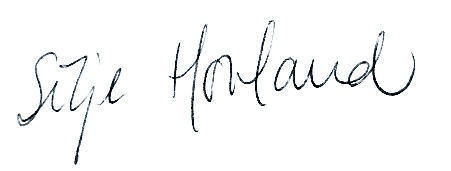 Silje Hovland